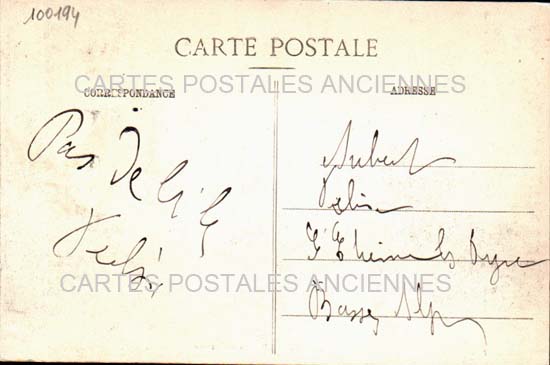 100194
CARTE POSTALE
CARTES POSTALES ANCIENNES
CORRESPONDANCE
ADRESSE
Pas De
Aubert
St Etienne les Orgues
Basses Alpes
CARTES POSTALES ANCIENNES